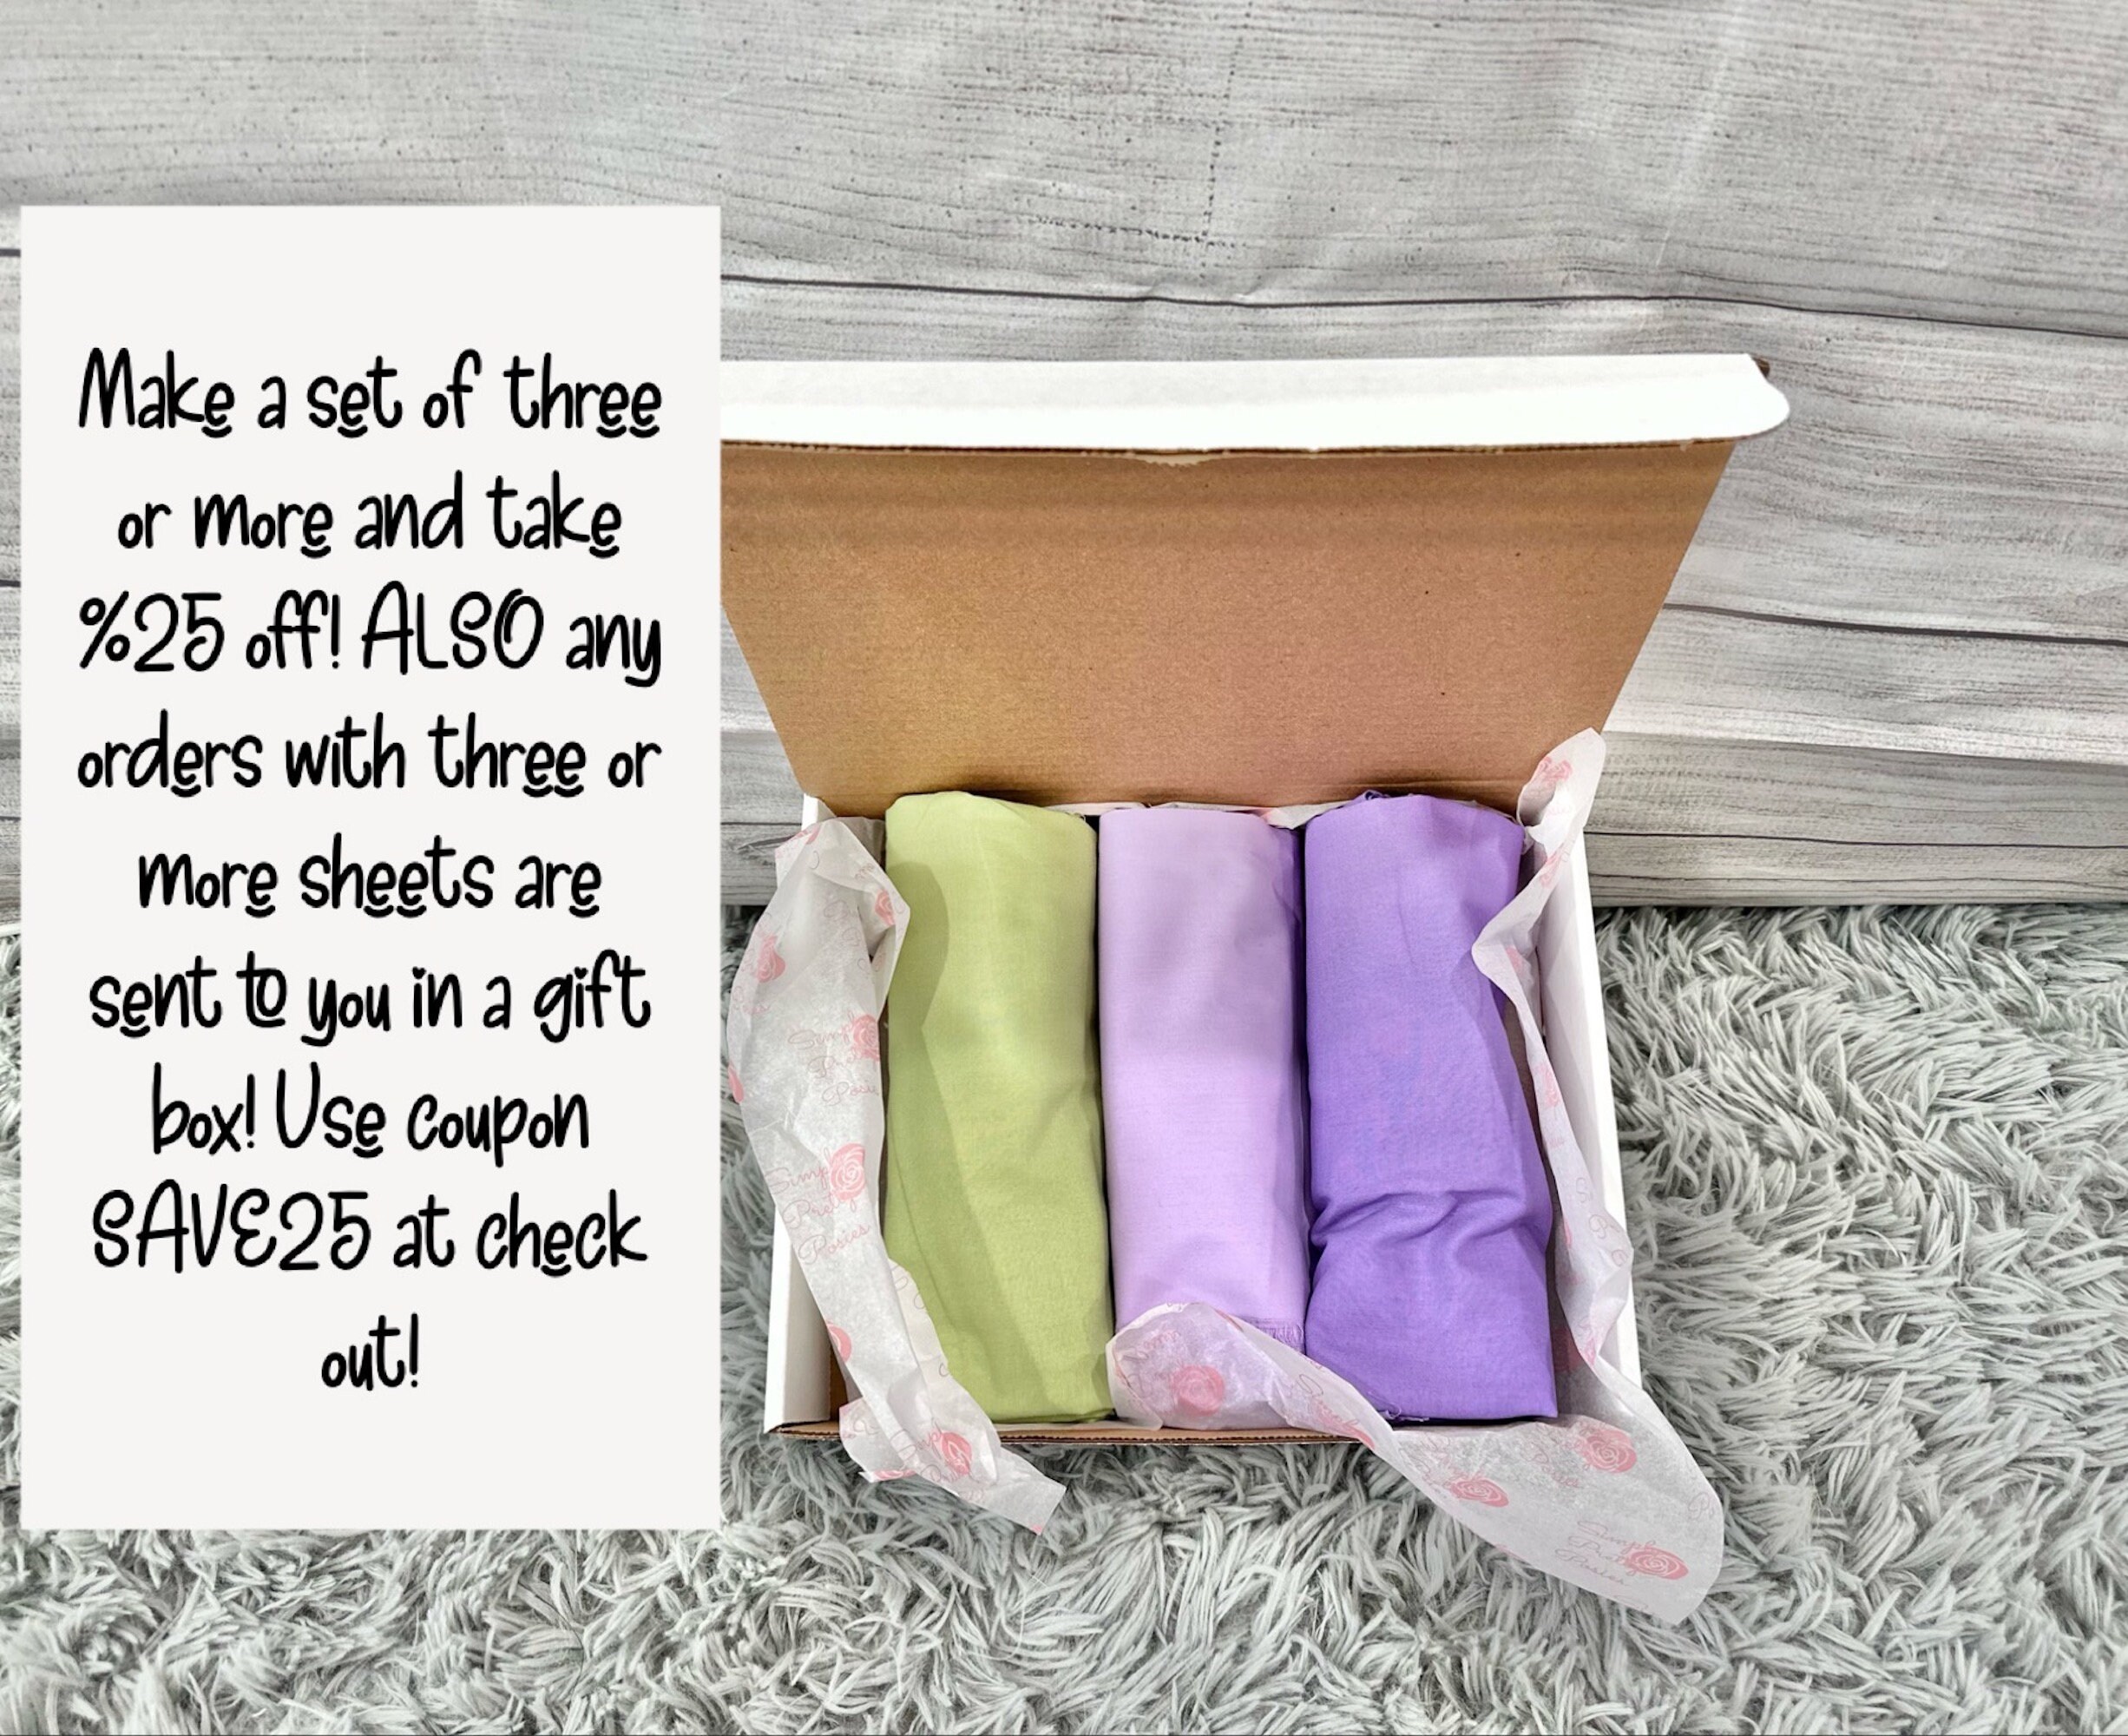 Make a set of three
or more and take
%25 off! ALSO any
orders with three or
more sheets are
sent to you in a gift
box! Use coupon
SAVE25 at check
out!
Simply
Pretty
Posies
Simply
Pretty
Posies